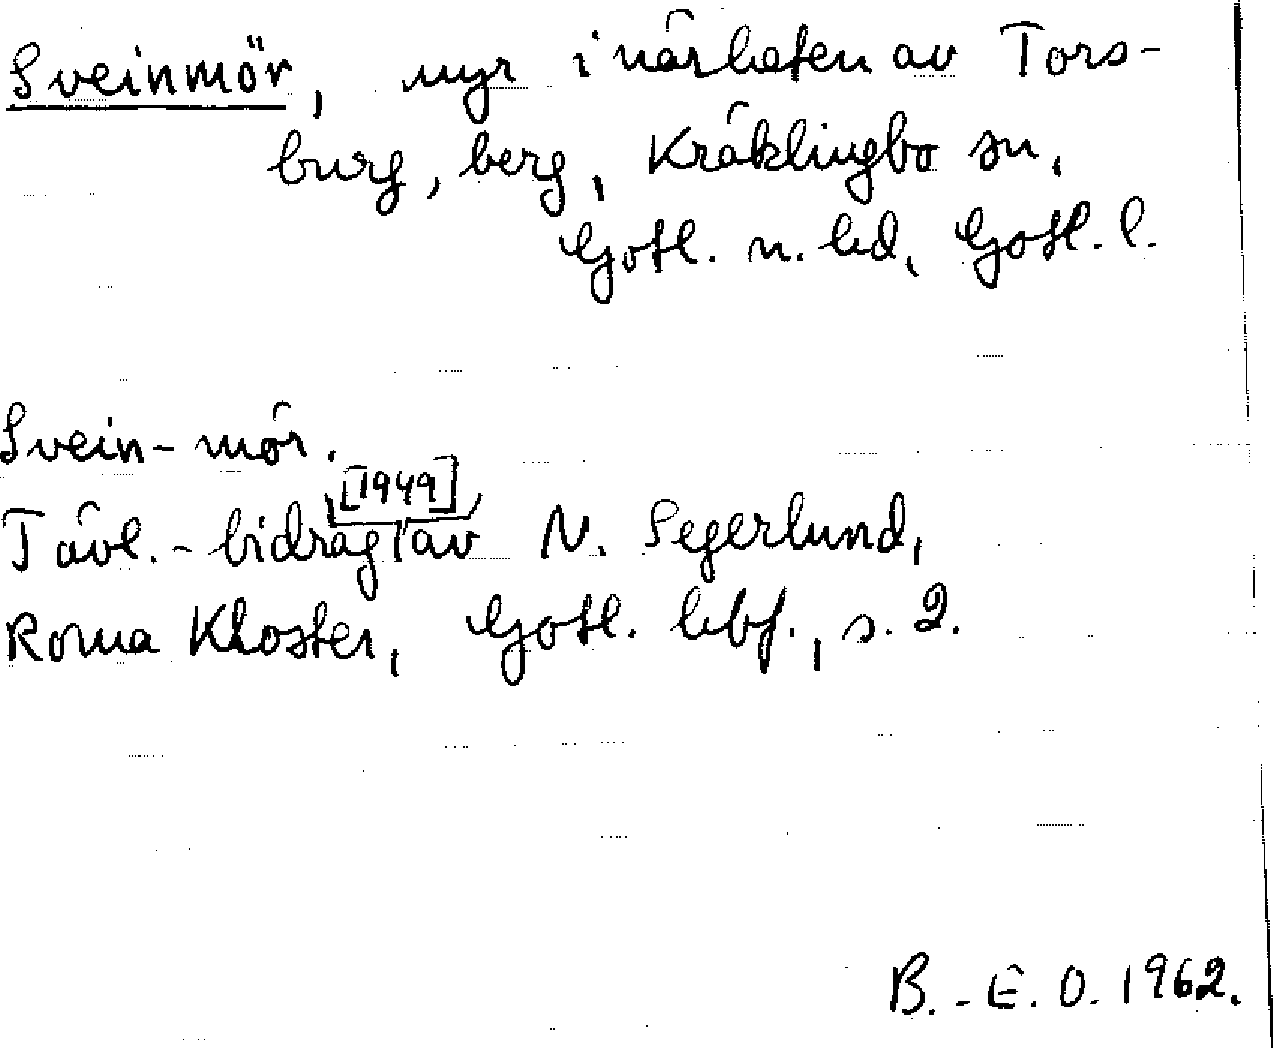 Sveinmör, myr i närheten av Tors-
burg, berg, Kräklingbo sn,
Gotl. n. hd, Gotl. l.
Svein-mör.
[1949]
Tävl.-bidrag av N. Segerlund,
Roma Kloster, Gotl. hbf., s. 2.
B.-E. O. 1962.